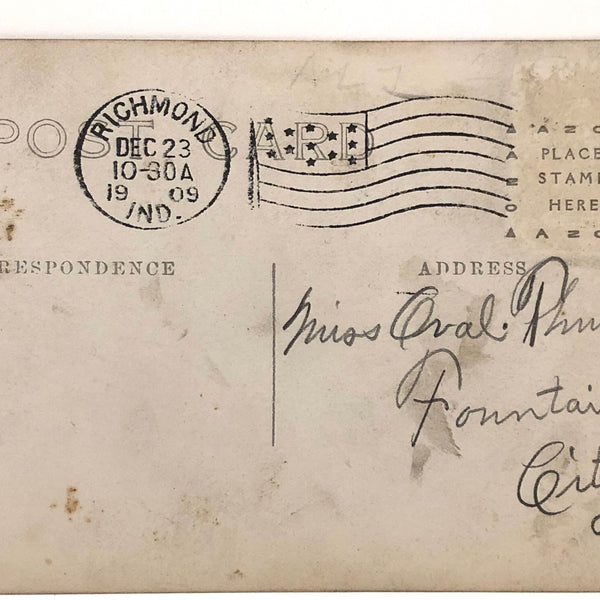 POST CARD
RICHMOND
DEC 23
10-30A
19 09
IND.
AZO
PLACE
STAMP
HERE
AZO
RESPONDENCE
ADDRESS
Miss Oval.
Fountai
City